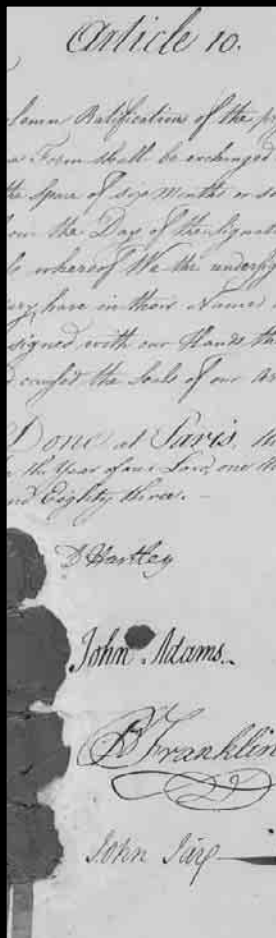 Article 10.
lemn Ratification of the pr
Form shall be exchanged
the Space of six Months or so
from the Day of the Signat
whereof We the undersig
have in their Name
signed with our Hands th
caused the Seals of our Ar
Done at Paris, th
the Year of our Lord, one th
nd Eighty three.
D Hartley
John Adams.
B Franklin
John Jay